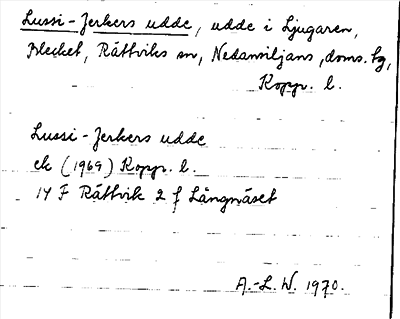 Lussi-Jerkers udde, udde i Ljugaren,
Blecket, Rättviks sn, Nedansiljans, doms. tg,
Kopp. l.
Lussi-Jerkers udde
ek (1969) Kopp. l.
14 F Rättvik 2 f Långnäset
A.-L. W. 1970.